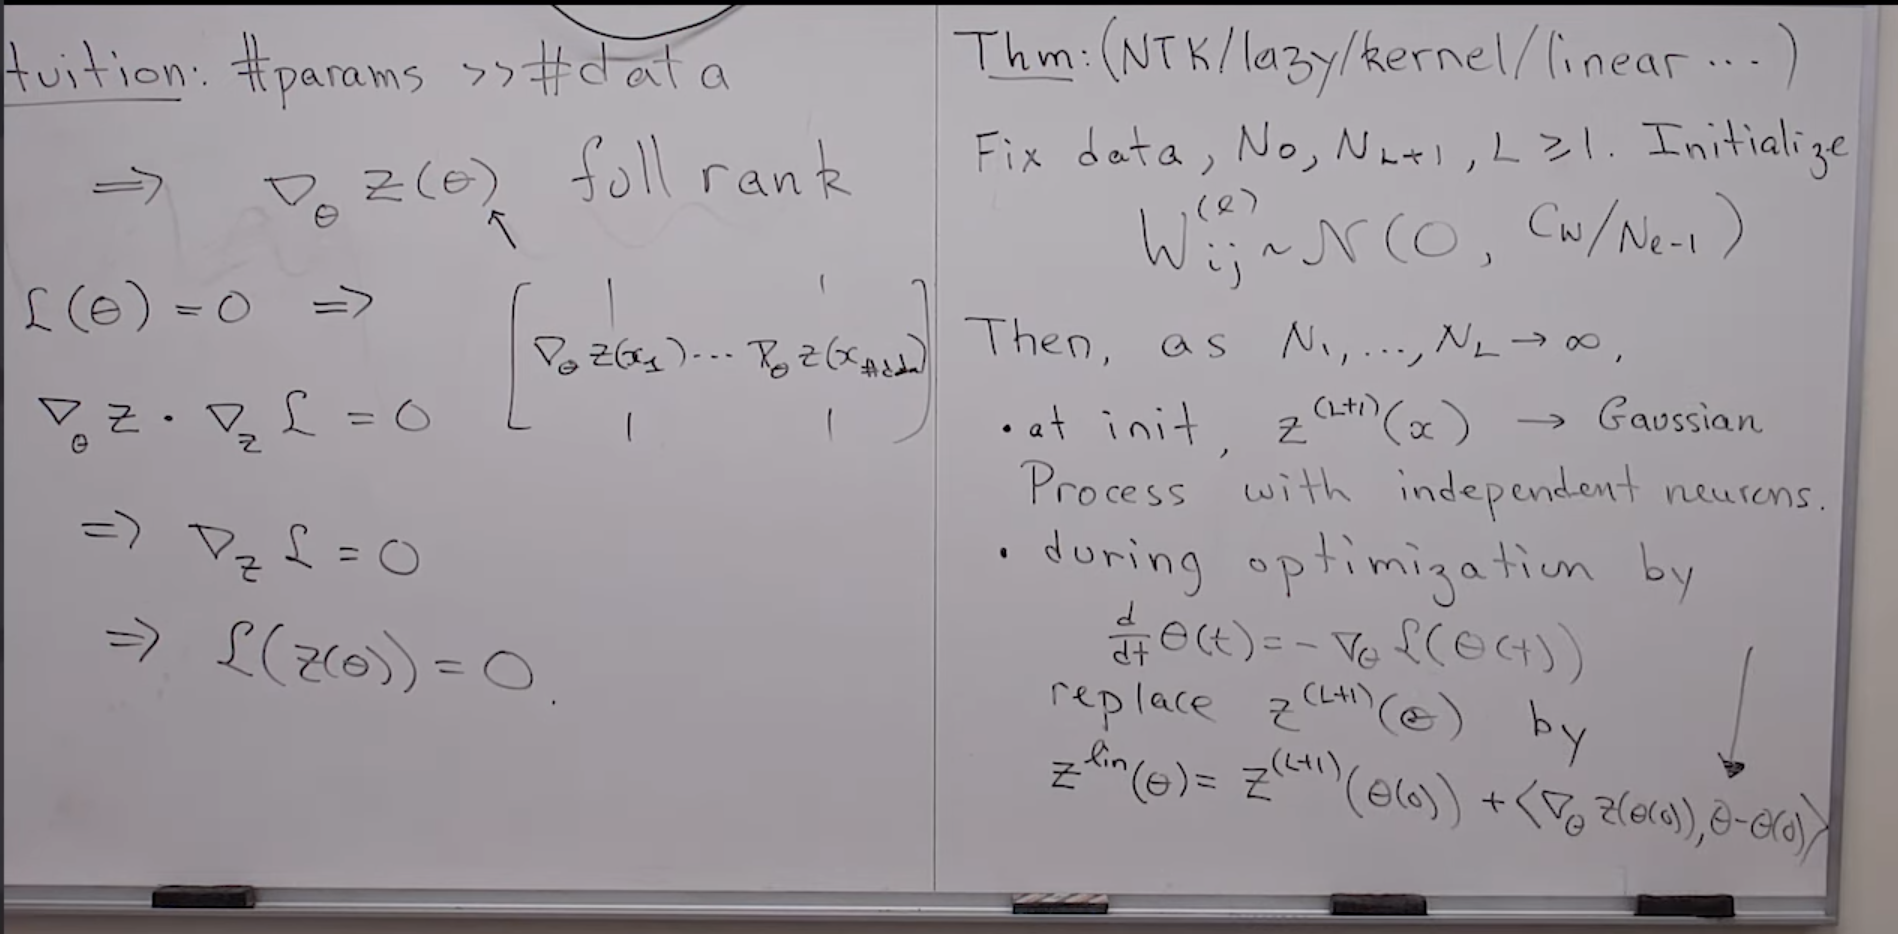 tuition: #params >> #data
⇒ ∇_θ z(θ) full rank
L(θ) = 0 ⇒
[ ∇_θ z(x_1) ... ∇_θ z(x_#data) ]
∇_θ z · ∇_z L = 0
⇒ ∇_z L = 0
⇒ L(z(θ)) = 0.
Thm: (NTK/lazy/kernel/linear ...)
Fix data, N_0, N_{L+1}, L ≥ 1. Initialize
W_{ij}^{(ℓ)} ~ N(0, C_W/N_{ℓ-1})
Then, as N_1, ..., N_L → ∞,
• at init, z^{(L+1)}(x) → Gaussian
Process with independent neurons.
• during optimization by
d/dt θ(t) = - ∇_θ L(θ(t))
replace z^{(L+1)}(θ) by
z^{lin}(θ) = z^{(L+1)}(θ(0)) + ⟨∇_θ z(θ(0)), θ-θ(0)⟩